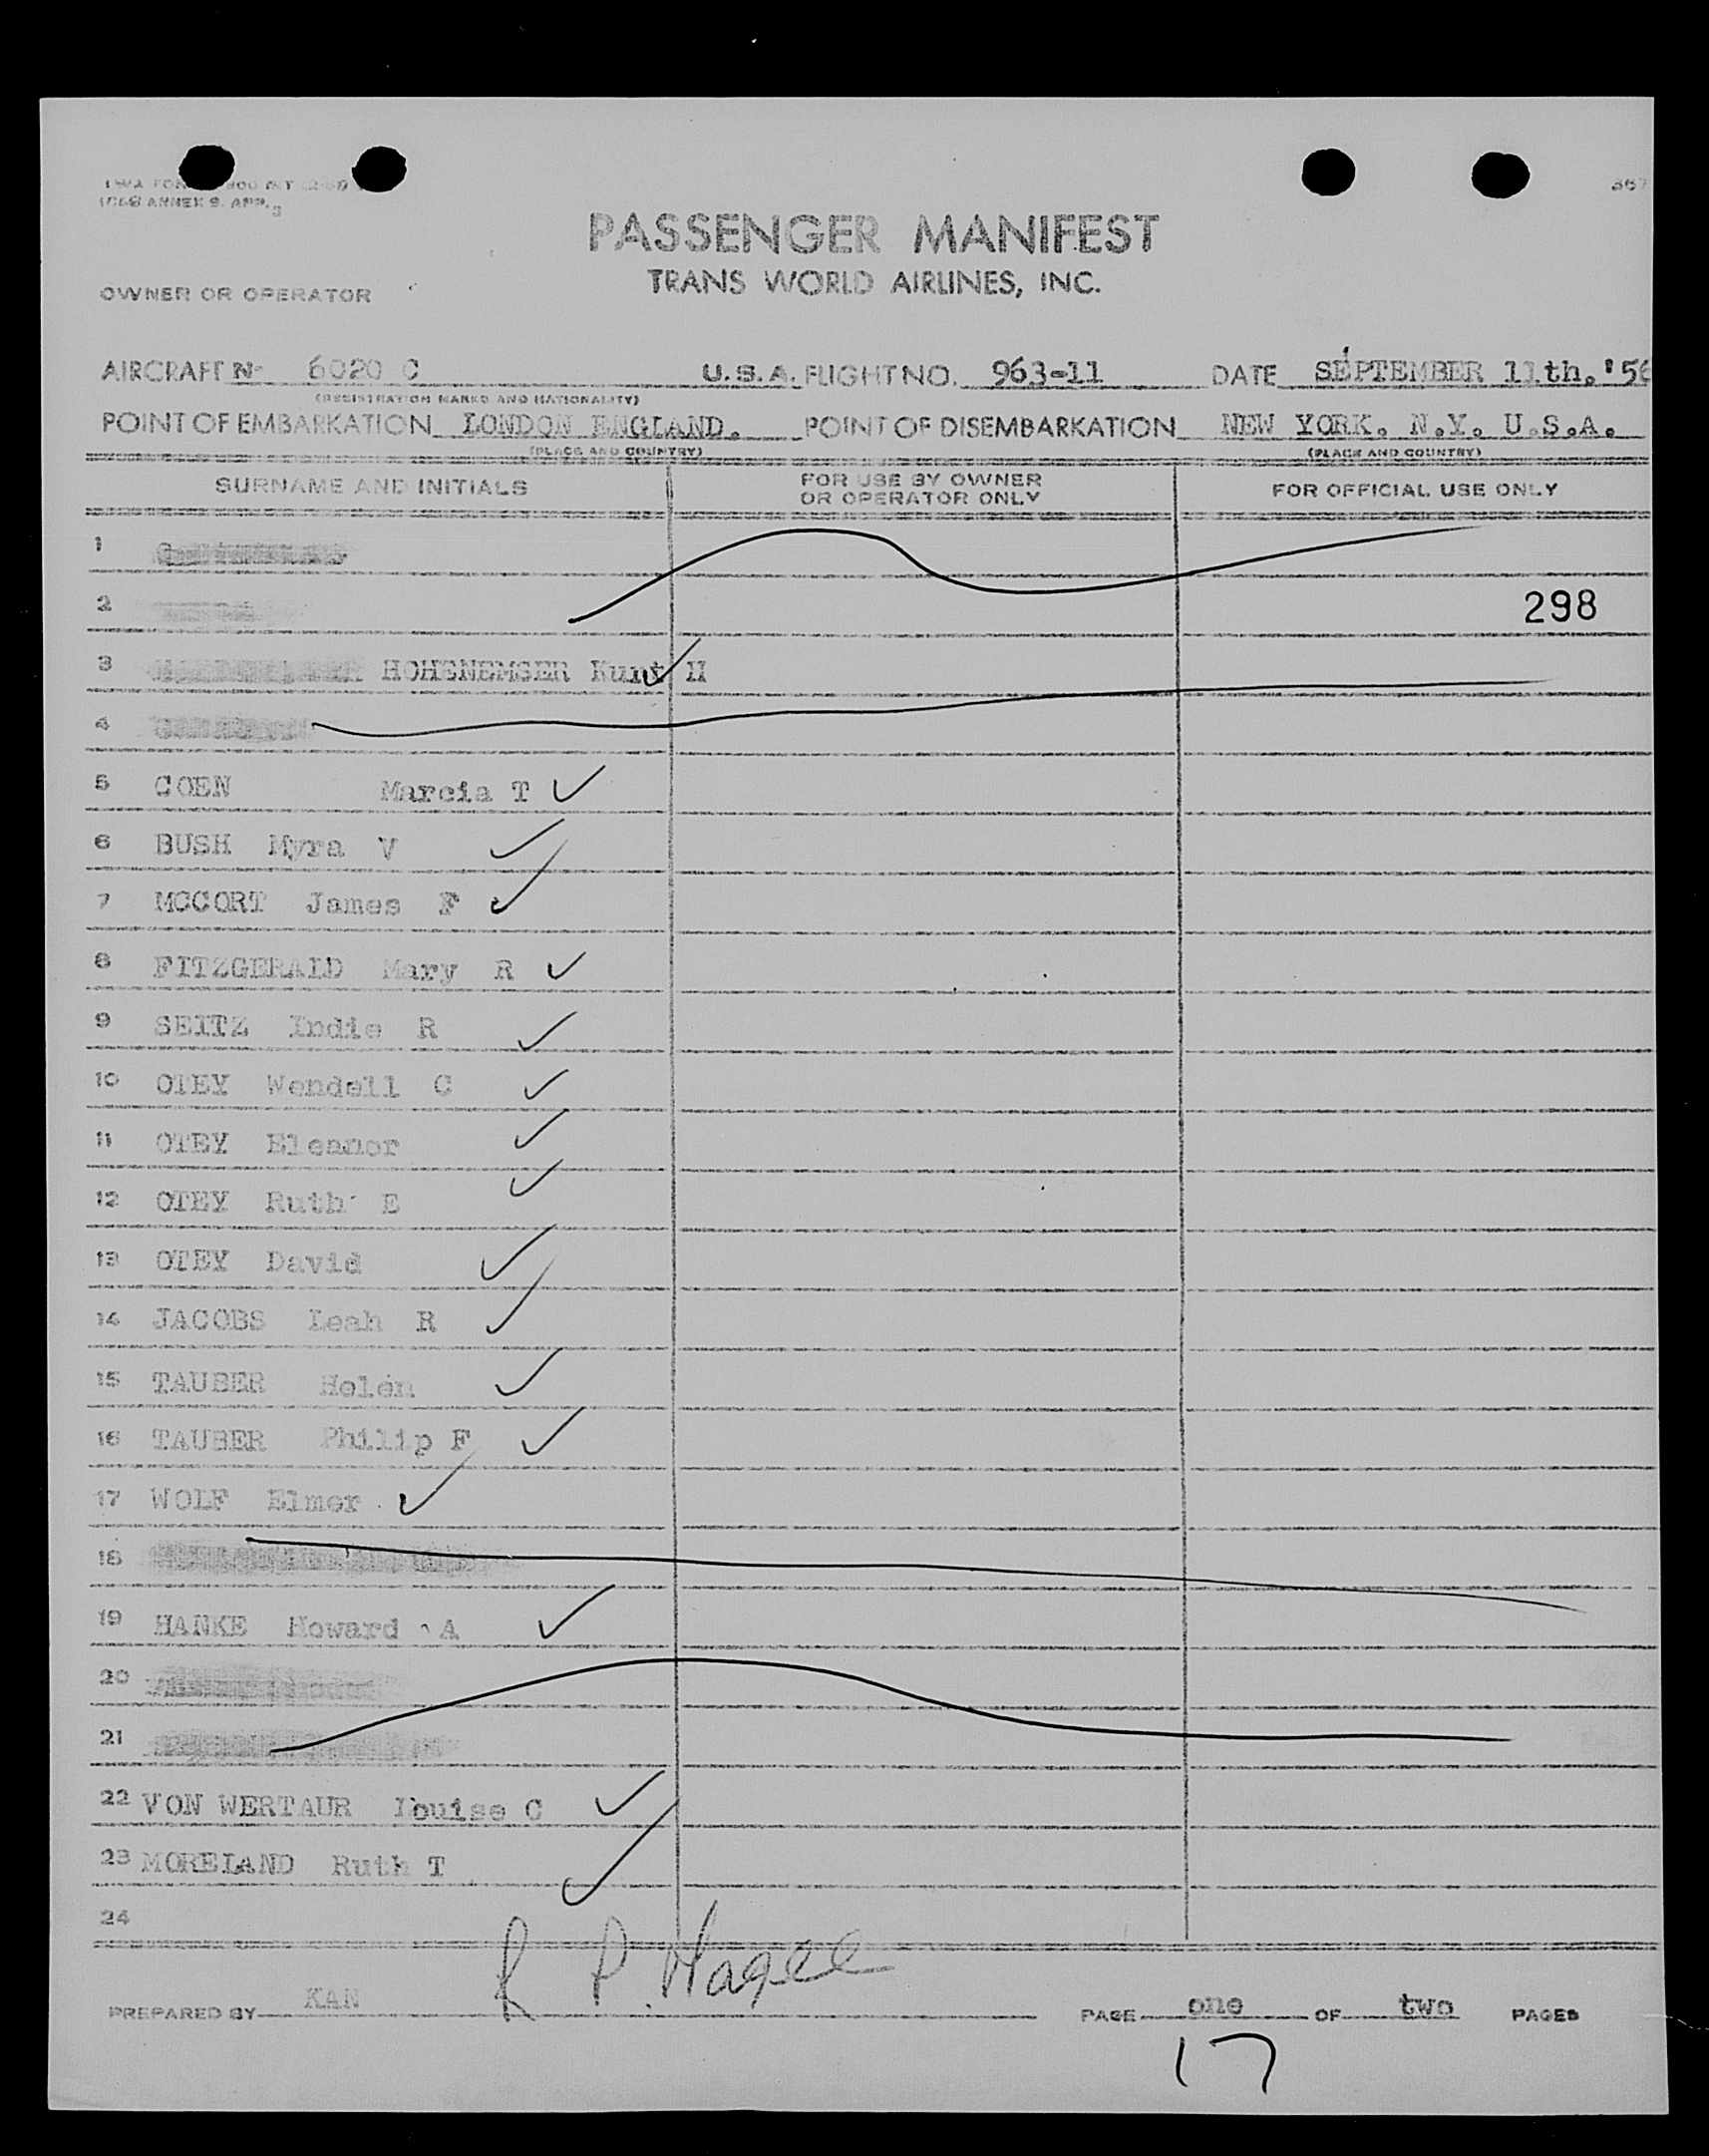 367
ICAO ANNEX 9. APP. 3
PASSENGER MANIFEST
TRANS WORLD AIRLINES, INC.
OWNER OR OPERATOR
AIRCRAFT N- 6020 C U.S.A. FLIGHT NO. 963-11 DATE SEPTEMBER 11th.'56
(REGISTRATION MARKS AND NATIONALITY)
POINT OF EMBARKATION LONDON ENGLAND. POINT OF DISEMBARKATION NEW YORK. N.Y. U.S.A.
(PLACE AND COUNTRY) (PLACE AND COUNTRY)
SURNAME AND INITIALS FOR USE BY OWNER OR OPERATOR ONLY FOR OFFICIAL USE ONLY
1
2 298
3 HOHENEMSER Kurt H
4
5 COEN Marcia T
6 BUSH Myra V
7 MCCORT James F
8 FITZGERALD Mary R
9 SEITZ Indie R
10 OTEY Wendell C
11 OTEY Eleanor
12 OTEY Ruth E
13 OTEY David
14 JACOBS Leah R
15 TAUBER Helen
16 TAUBER Philip F
17 WOLF Elmer
18
19 HANKE Howard A
20
21
22 VON WERTAUR Louise C
23 MORELAND Ruth T
24
PREPARED BY KAN R P. Hagee PAGE one OF two PAGES
17